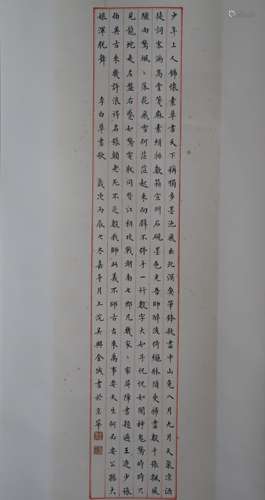 少年上人號懷素草書天下稱獨步墨池飛出北溟魚筆鋒殺盡中山兔八月九月天氣涼酒
徒詞客滿高堂箋麻素絹排數箱宣州石硯墨色光吾師醉後倚繩牀須臾掃盡數千張飄風
驟雨驚颯颯落花飛雪何茫茫起來向壁不停手一行數字大如斗怳怳如聞神鬼驚時時只
見龍蛇走左盤右蹙如驚電狀同楚漢相攻戰湖南七郡凡幾家家家屏障書題遍王逸少張
伯英古來幾許浪得名張顛老死不足數我師此義不師古古來萬事要天生何必要公孫大
娘渾脫舞 李白草書歌 歲次丙辰之冬嘉平月上浣吳興金城書於京華